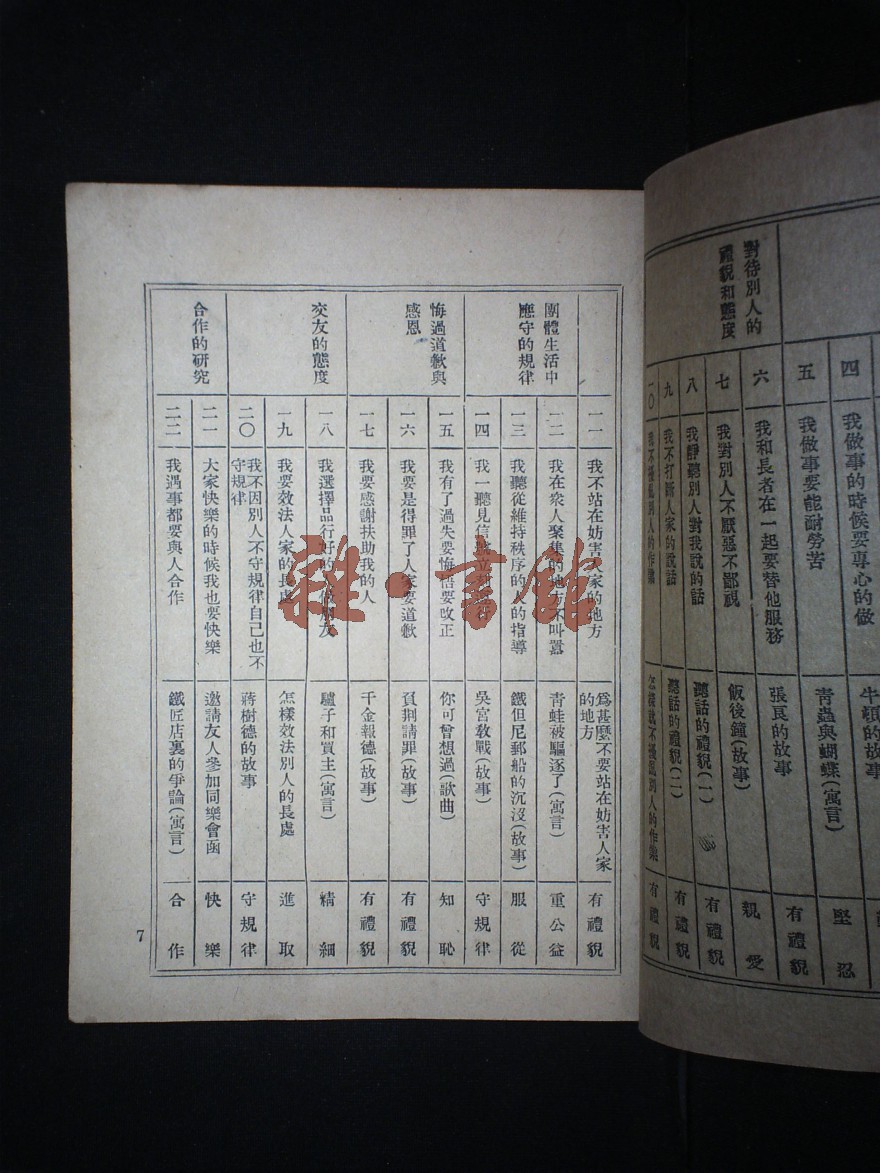 四
我做事的時候要專心的做
五
我做事要能耐勞苦
青蟲與蝴蝶(寓言)
堅忍
對待別人的
禮貌和態度
六
我和長者在一起要替他服務
張良的故事
有禮貌
七
我對別人不厭惡不鄙視
飯後鐘(故事)
親愛
八
我靜聽別人對我說的話
聽話的禮貌(一)
有禮貌
九
我不打斷人家的說話
聽話的禮貌(二)
有禮貌
一〇
有禮貌
一一
我不站在妨害人家的地方
爲甚麼不要站在妨害人家
的地方
有禮貌
團體生活中
應守的規律
一二
我在衆人聚集的地方不叫囂
青蛙被驅逐了(寓言)
重公益
一三
我聽從維持秩序的人的指導
鐵但尼郵船的沉沒(故事)
服從
一四
我一聽見信號立刻
吳宮敎戰(故事)
守規律
悔過道歉與
感恩
一五
我有了過失要悔悟要改正
你可曾想過(歌曲)
知恥
一六
我要是得罪了人家要道歉
負荆請罪(故事)
有禮貌
一七
我要感謝扶助我的人
千金報德(故事)
有禮貌
交友的態度
一八
我選擇品行好的人做朋友
驢子和買主(寓言)
精細
一九
我要效法人家的長處
怎樣效法別人的長處
進取
二〇
我不因別人不守規律自己也不
守規律
蔣樹德的故事
守規律
合作的研究
二一
大家快樂的時候我也要快樂
邀請友人參加同樂會函
快樂
二二
我遇事都要與人合作
鐵匠店裏的爭論(寓言)
合作
7
雜·書館